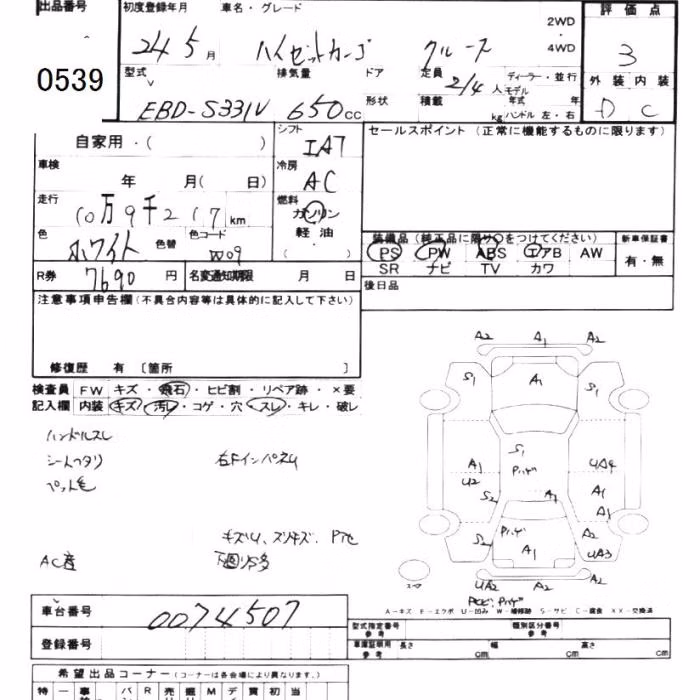 出品番号 初度登録年月 車名・グレード 評価点
2WD
24 5月 ハイゼットカーゴ クルーズ ・ 3
4WD
0539 型式 排気量 ドア 定員 2/4人 ディーラー・並行 外装 内装
モデル
EBD-S331V 650cc 形状 積載 kg 年式 年 D C
ハンドル 左・右
自家用・( ) シフト IA7 セールスポイント (正常に機能するものに限ります)
車検 冷房
年 月( 日) AC
走行 燃料
10万9千217km ガソリン
色 色替 色コード 軽油
ホワイト W09 ( )
装備品 (純正品に限り○をつけてください) 新車保証書
PS PW ABS エアB AW 有・無
SR ナビ TV カワ
R券 7690円 名変通知期限 月 日
後日品
注意事項申告欄 (不具合内容等は具体的に記入して下さい)
修復歴 有 〔箇所 〕
検査員 FW キズ・飛石・ヒビ割・リペア跡・×要
記入欄 内装 キズ・汚レ・コゲ・穴・スレ・キレ・破レ
ハンドルスレ
シートヘタリ 右FインパネU
ペット毛
キズU、スリキズ、Pアセ
AC産 下回りS多
A2 A1 A2
S1 A1 S1
S1
A1 Pハゲ UA4
U2 S2 A1 A1
A1
S2 Pハゲ UA3
A1
UA2 A2 A2
スペア
PCビ、Pハゲ
A-キズ E-エクボ U-凹み W-補修跡 S-サビ C-腐食 XX-交換済
車台番号 0074507
型式指定番号 参考 類別区分番号 参考
登録番号 車庫証明用 参考 長さ cm 幅 cm 高さ cm
希望出品コーナー (コーナーは各会場により異なります。)
特 一 事 バ R 売 掘 M デ 買 初 当